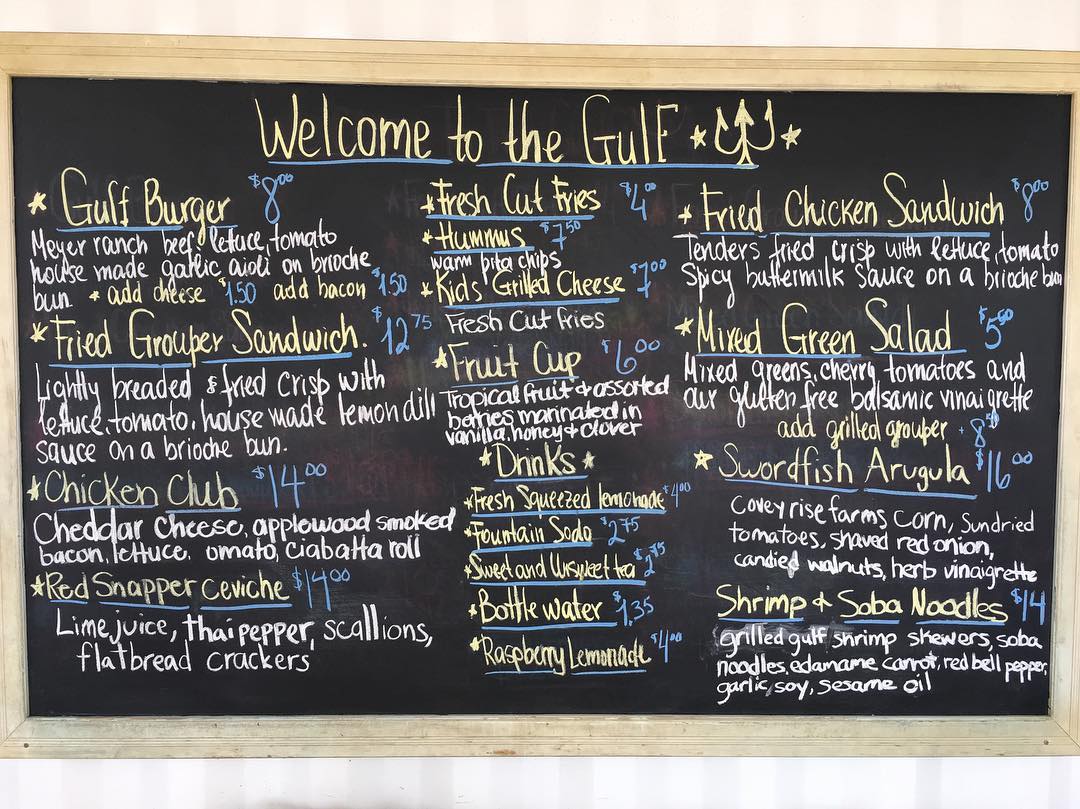 Welcome to the Gulf
Gulf Burger $8.00
Meyer ranch beef, lettuce, tomato
house made garlic aioli on brioche
bun + add cheese $1.50 add bacon $1.50
Fried Grouper Sandwich. $12.75
Lightly breaded & fried crisp with
lettuce, tomato, house made lemon dill
sauce on a brioche bun.
Chicken Club $14.00
Cheddar cheese, applewood smoked
bacon, lettuce, omato, ciabatta roll
Red Snapper ceviche $14.00
Lime juice, thai pepper, scallions,
flatbread crackers
Fresh Cut Fries $4.00
Hummus $7.50
warm pita chips
Kids Grilled Cheese $7.00
Fresh Cut fries
Fruit Cup $6.00
Tropical fruit & assorted
berries marinated in
vanilla, honey & clover
Drinks
Fresh Squeezed lemonade $4.00
Fountain Soda $2.75
Sweet and Unsweet tea $2.75
Bottle water $1.35
Raspberry Lemonade $4.00
Fried Chicken Sandwich $8.00
Tenders fried crisp with lettuce, tomato
Spicy buttermilk sauce on a brioche bun
Mixed Green Salad $5.50
Mixed greens, cherry tomatoes and
our gluten free balsamic vinaigrette
add grilled grouper + 8.50
Swordfish Arugula $16.00
Covey rise farms corn, sundried
tomatoes, shaved red onion,
candied walnuts, herb vinaigrette
Shrimp & Soba Noodles $14
grilled gulf shrimp skewers, soba
noodles, edamame carrot, red bell pepper,
garlic, soy, sesame oil